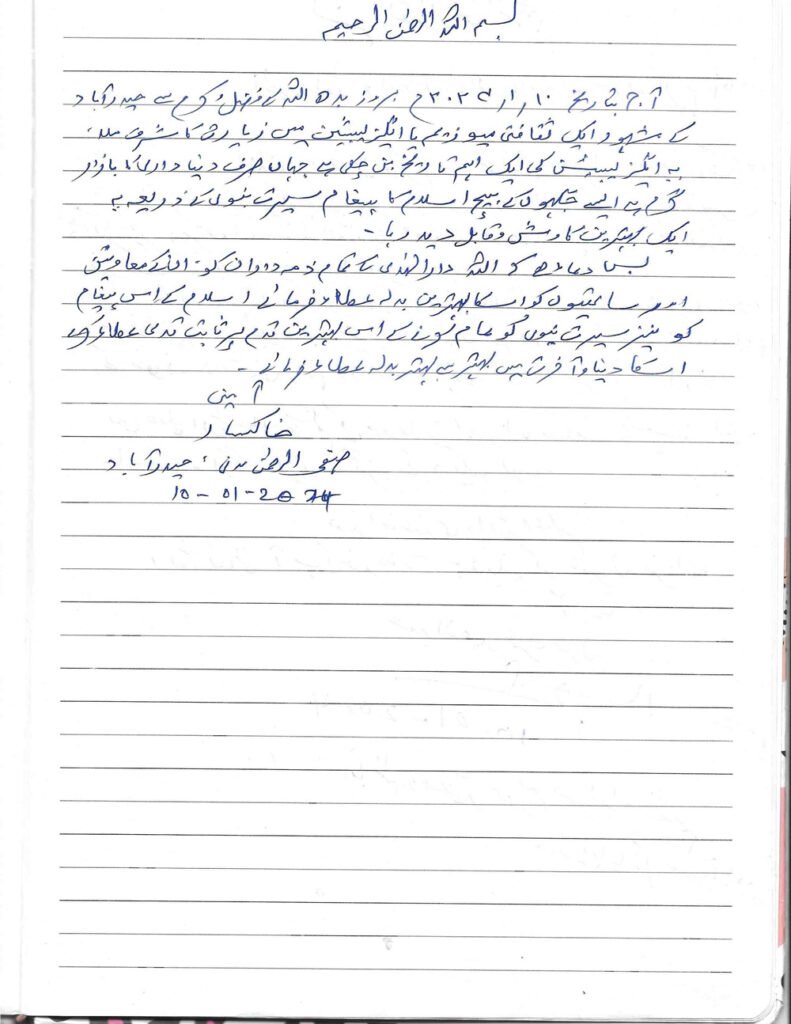 بسم اللہ الرحمن الرحیم
آج بتاریخ ۱۰/۱/۲۰۲۴م بروز بدھ اللہ کے فضل و کرم سے حیدرآباد
کے مشہور ایک ثقافتی میوزیم یا ایگزیبیشن میں زیارت کا شرف ملا،
یہ ایگزیبیشن کی ایک اہم تاریخ بن چکی ہے جہاں صرف دنیا داری کا بازار
گرم ہے ایسے جگہوں کے بیچ اسلام کا پیغام سیرت نبوی کے ذریعہ یہ
ایک بہترین کاوش و قابل دید رہا -
بس دعا ہے کہ اللہ دارالہدی کے تمام ذمہ داران کو، انکے معاونین
اور ساتھیوں کو اسکا بہترین بدلہ عطاء فرمائے اسلام کے اس پیغام
کو نیز سیرت نبوی کو عام کرنے کے اس بہترین قدم پر ثابت قدمی عطا کرے اور
اسکا دنیا و آخرت میں بہتر سے بہتر بدلہ عطاء فرمائے -
آمین
خاکسار
صفی الرحمن مدنی، حیدرآباد
10-01-2024